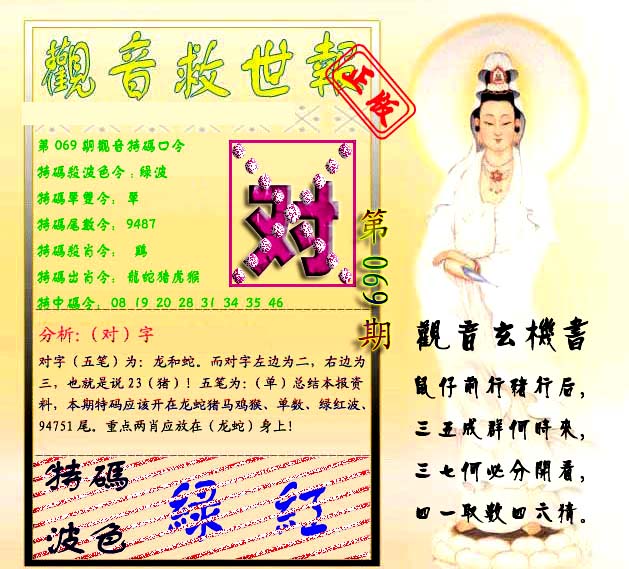 觀音救世報
正版
第 069 期觀音特碼口令
特碼殺波色令：綠波
特碼單雙令：單
特碼尾數令：9487
特碼殺肖令：鷄
特碼出肖令：龍蛇猪虎猴
特中碼令：08 19 20 28 31 34 35 46
对
第069期
分析：（对）字
对字（五笔）为：龙和蛇。而对字左边为二，右边为
三，也就是说 23（猪）！五笔为：（单）总结本报资
料，本期特码应该开在龙蛇猪马鸡猴、单数、绿红波、
94751 尾。重点两肖应放在（龙蛇）身上！
特碼
波色
綠 紅
觀音玄機書
鼠仔前行猪行后，
三五成群何時來，
三七何必分開看，
四一取數四六猜。